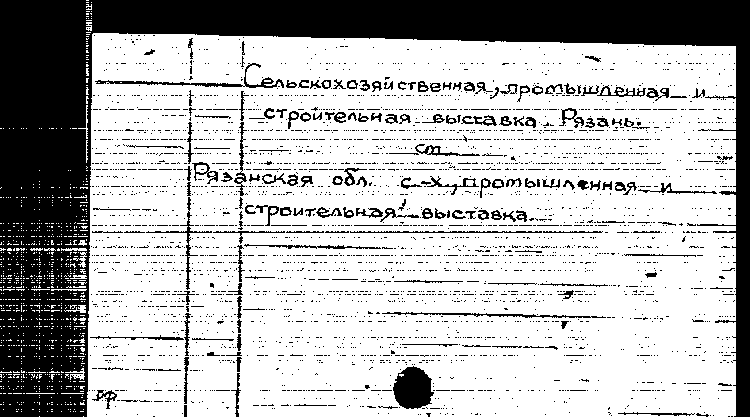 Сельскохозяйственная, промышленная и
строительная выставка. Рязань.
см.
Рязанская обл. с.-х., промышленная и
строительная выставка.